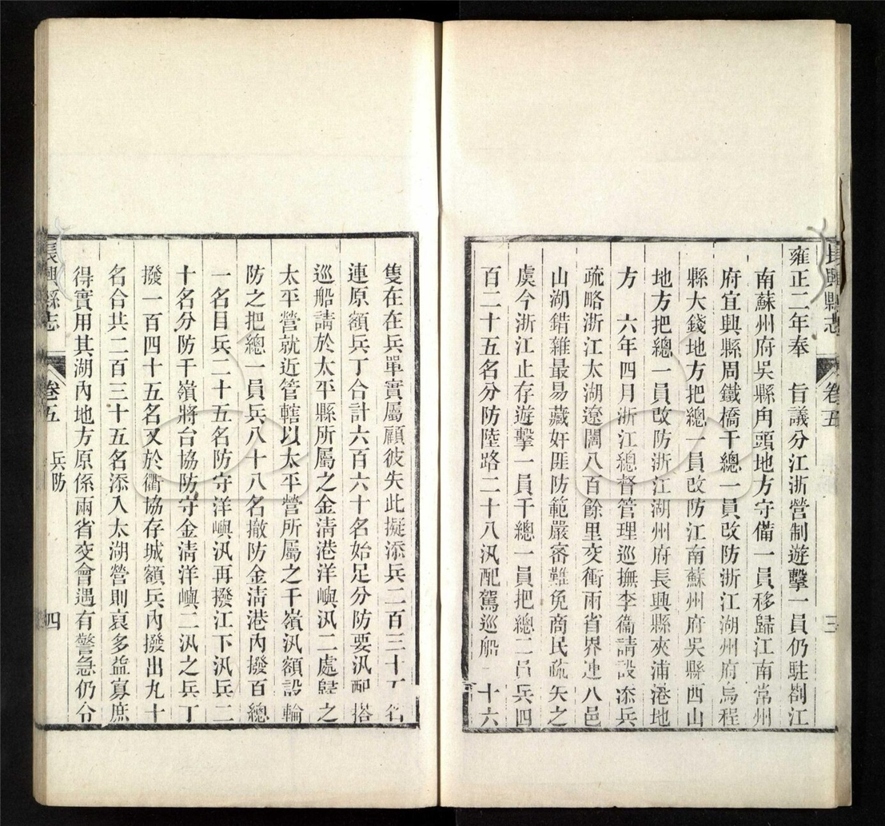 長興縣志
卷五
三
雍正二年奉　旨議分江浙營制遊擊一員仍駐劄江
南蘇州府吳縣角頭地方守備一員移歸江南常州
府宜興縣周鐵橋千總一員改防浙江湖州府烏程
縣大錢地方把總一員改防江南蘇州府吳縣西山
地方把總一員改防浙江湖州府長興縣夾浦港地
方　六年四月浙江總督管理巡撫李衞請設添兵
疏略浙江太湖遼闊八百餘里交衝兩省界連八邑
山湖錯雜最易藏奸匪防範嚴密難免商民疏失之
虞今浙江止存遊擊一員千總一員把總二員兵四
百二十五名分防陸路二十八汛配駕巡船　十六
隻在在兵單實屬顧彼失此擬添兵二百三十五名
連原額兵丁合計六百六十名始足分防要汛配搭
巡船請於太平縣所屬之金淸港洋嶼汛二處歸之
太平營就近管轄以太平營所屬之干嶺汛額設輪
防之把總一員兵八十八名撤防金淸港內撥百總
一名目兵二十五名防守洋嶼汛再撥江下汛兵二
十名分防干嶺將台協防守金淸洋嶼二汛之兵丁
撥一百四十五名又於衢協存城額兵內撥出九十
名合共二百三十五名添入太湖營則裒多益寡庶
得實用其湖內地方原係兩省交會遇有警急仍分
長興縣志
卷五
兵防
四